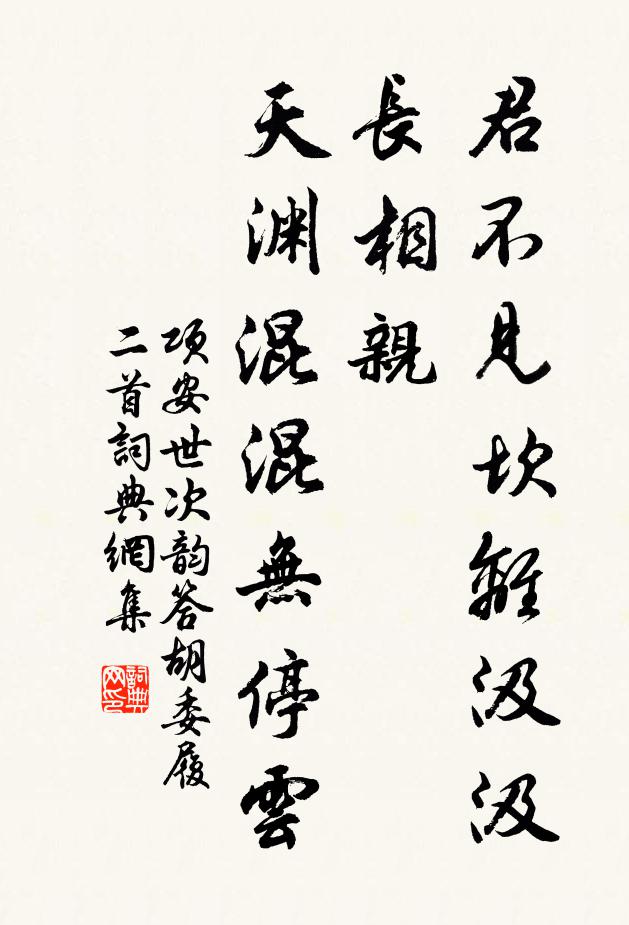 君不見坎離汲汲
長相親
天渊混混無停雲
項安世次韵答胡委履
二首詞典網集
詞典网印